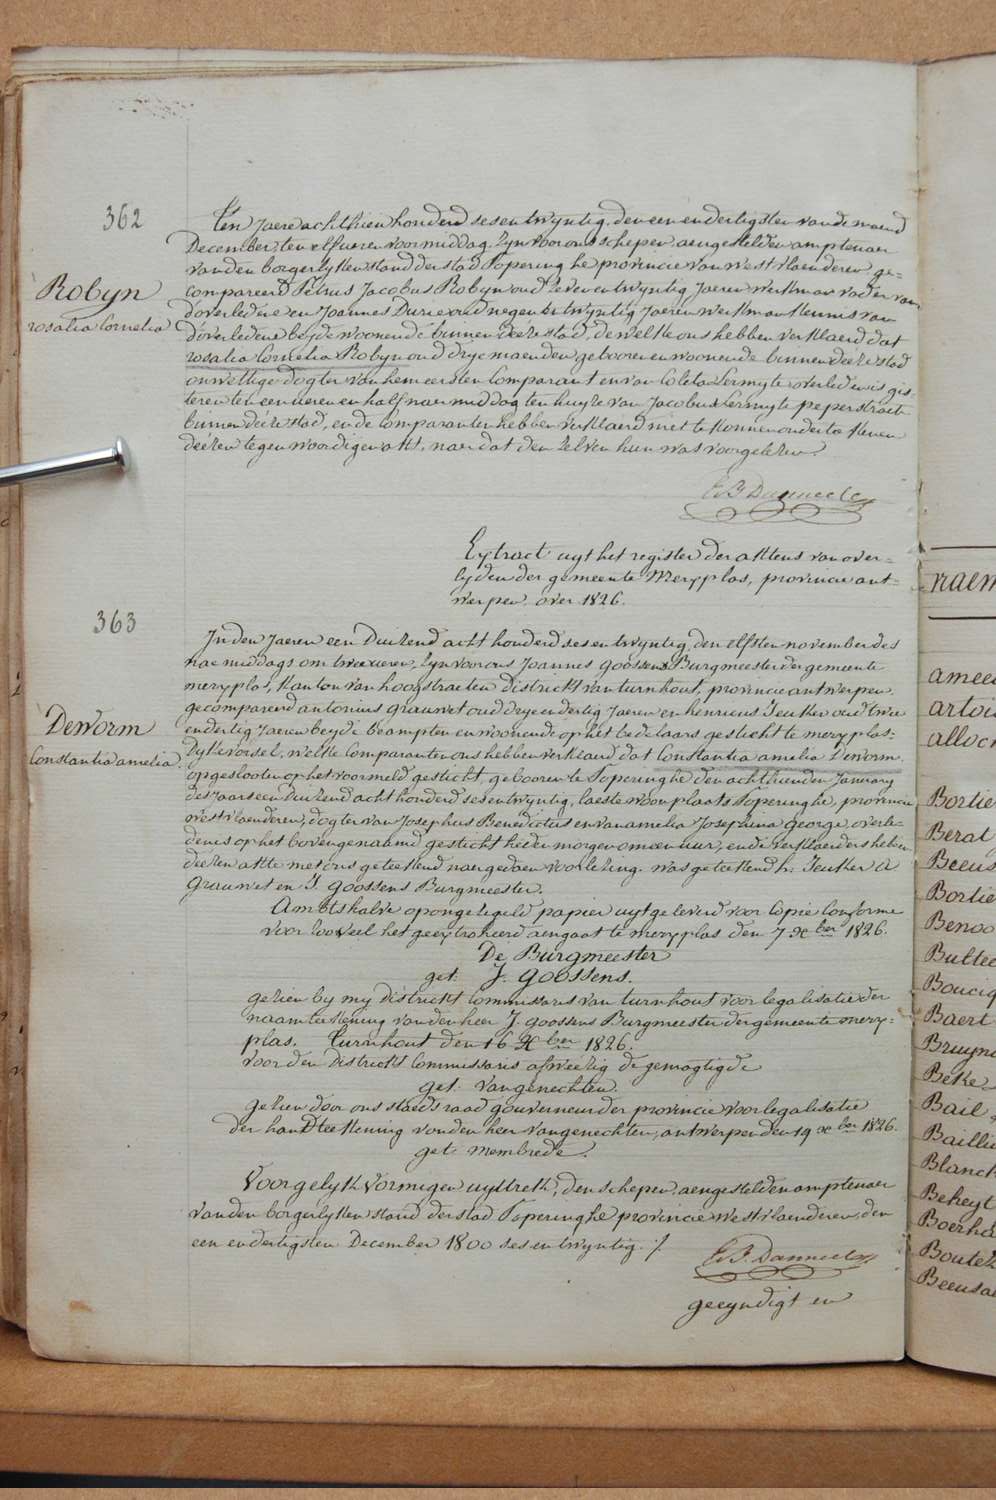 362
Robyn
rosalia Cornelia
Ten Jaere achthien honderd sesentwyntig, den een en dertigsten van de maend
December ten elf uren voormiddag, zyn voor ons schepen aengestelden amptenaer
van den borgerlyken stand der stad Poperinghe provincie van westvlaenderen ge=
compareerd Petrus Jacobus Robyn oud zeven en twyntig Jaeren werkman vader van
d'overledene en Joannes Durie oud negen en twyntig Jaeren werkman kennis van
d'overledene beyde woonende binnen deeze stad, dewelke ons hebben verklaerd dat
rosalia Cornelia Robyn oud drye maenden gebooren en woonende binnen deeze stad
onwettige dogter van hem eersten Comparant en van Coleta Sermyte overleden is gis=
teren ten een ueren en half naermiddag ten huyze van Jacobus Sermyte peperstraete
binnen deeze stad, en de Comparanten hebben verklaerd niet te konnen onderteekenen
deezen tegenwoordigen akt, naer dat den zelven hun was voorgelezen.
Danneels
Extract uyt het register der aktens van over=
lyden der gemeente Meryplas, provincie ant=
werpen over 1826.
363
Deworm
Constantia amelia
In den Jaeren een Duizend acht honderd ses en twyntig, den elfsten november des
naermiddags om twee ueren, zyn voor ons Joannes Goossens Burgmeester der gemeente
meryplas, kanton van hoogstraeten district van turnhout, provincie antwerpen
gecompareerd antonius grauwet oud drye en dertig Jaeren en henricus Jeuken oud twee
en dertig Jaeren beyde beampten en woonende op het bedelaers gesticht te meryplas=
, welke Comparanten ons hebben verklaerd dat Constantia amelia Deworm
opgeslooten op het voormeld gesticht, gebooren te Poperinghe den achthienden January
des Jaars een Duizend acht honderd ses en twyntig, laeste woonplaats Poperinghe, provincie
westvlaenderen, dogter van Josephus Benedictus en van amelia Josephina george, overle=
den is op het bovengenaamd gesticht heden morgen om een uur, en de verklaerders hebben
deezen akte met ons geteekend naer gedaen voorlezing. was geteekend h. Jeuken A
Grauwet en J. Goossens Burgmeester.
Ambtshalve op ongezegeld papier uytgeleverd voor Copie Conforme
voor zooveel het geextraheerd aengaat te meryplas den 7 xber 1826.
De Burgmeester
get. J. Goossens.
gezien by my districkt Commissaris van turnhout voor legalisatie der
naamteekening van den heer J. Goossens Burgmeester der gemeente mery=
plas. Turnhout den 16 xber 1826.
voor den districkts Commissaris afweezig de gemagtigde
get. vangenechten.
gezien door ons staedsraad gouverneur der provincie voor legalisatie
der handteekening van den heer vangenechten, antwerpen den 19 xber 1826.
get. membrede.
Voor gelykvormigen uyttrek, den schepen aengestelden amptenaer
van den borgerlyken stand der stad Poperinghe provincie westvlaenderen, den
een en dertigsten December 1800 ses en twyntig ./.
Danneels
geeyndigt en
naem
amee
artois
alloc
Bortie
Berat
Beeus
Bortie
Benoo
Buttee
Boucig
Baert
Bruyn
Beke
Bail
Baillie
Blanck
Bekeyt
Boerha
Boutek
Beensa